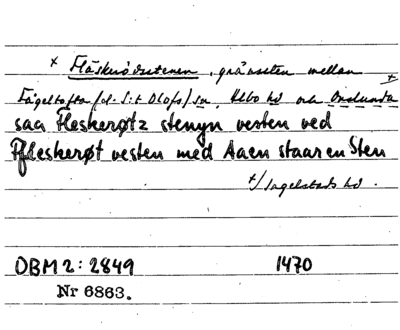 + Fläskrödstenen, gränssten mellan
Fågeltofta (el. S:t Olofs) sn, Albo hd och Onslunda +
saa Fleskerøtz stenyn vesten ved
Pfleskerøt vesten med Aaen staar en Sten
+/ Ingelstads hd.
DBM 2: 2849 1470
Nr 6863.